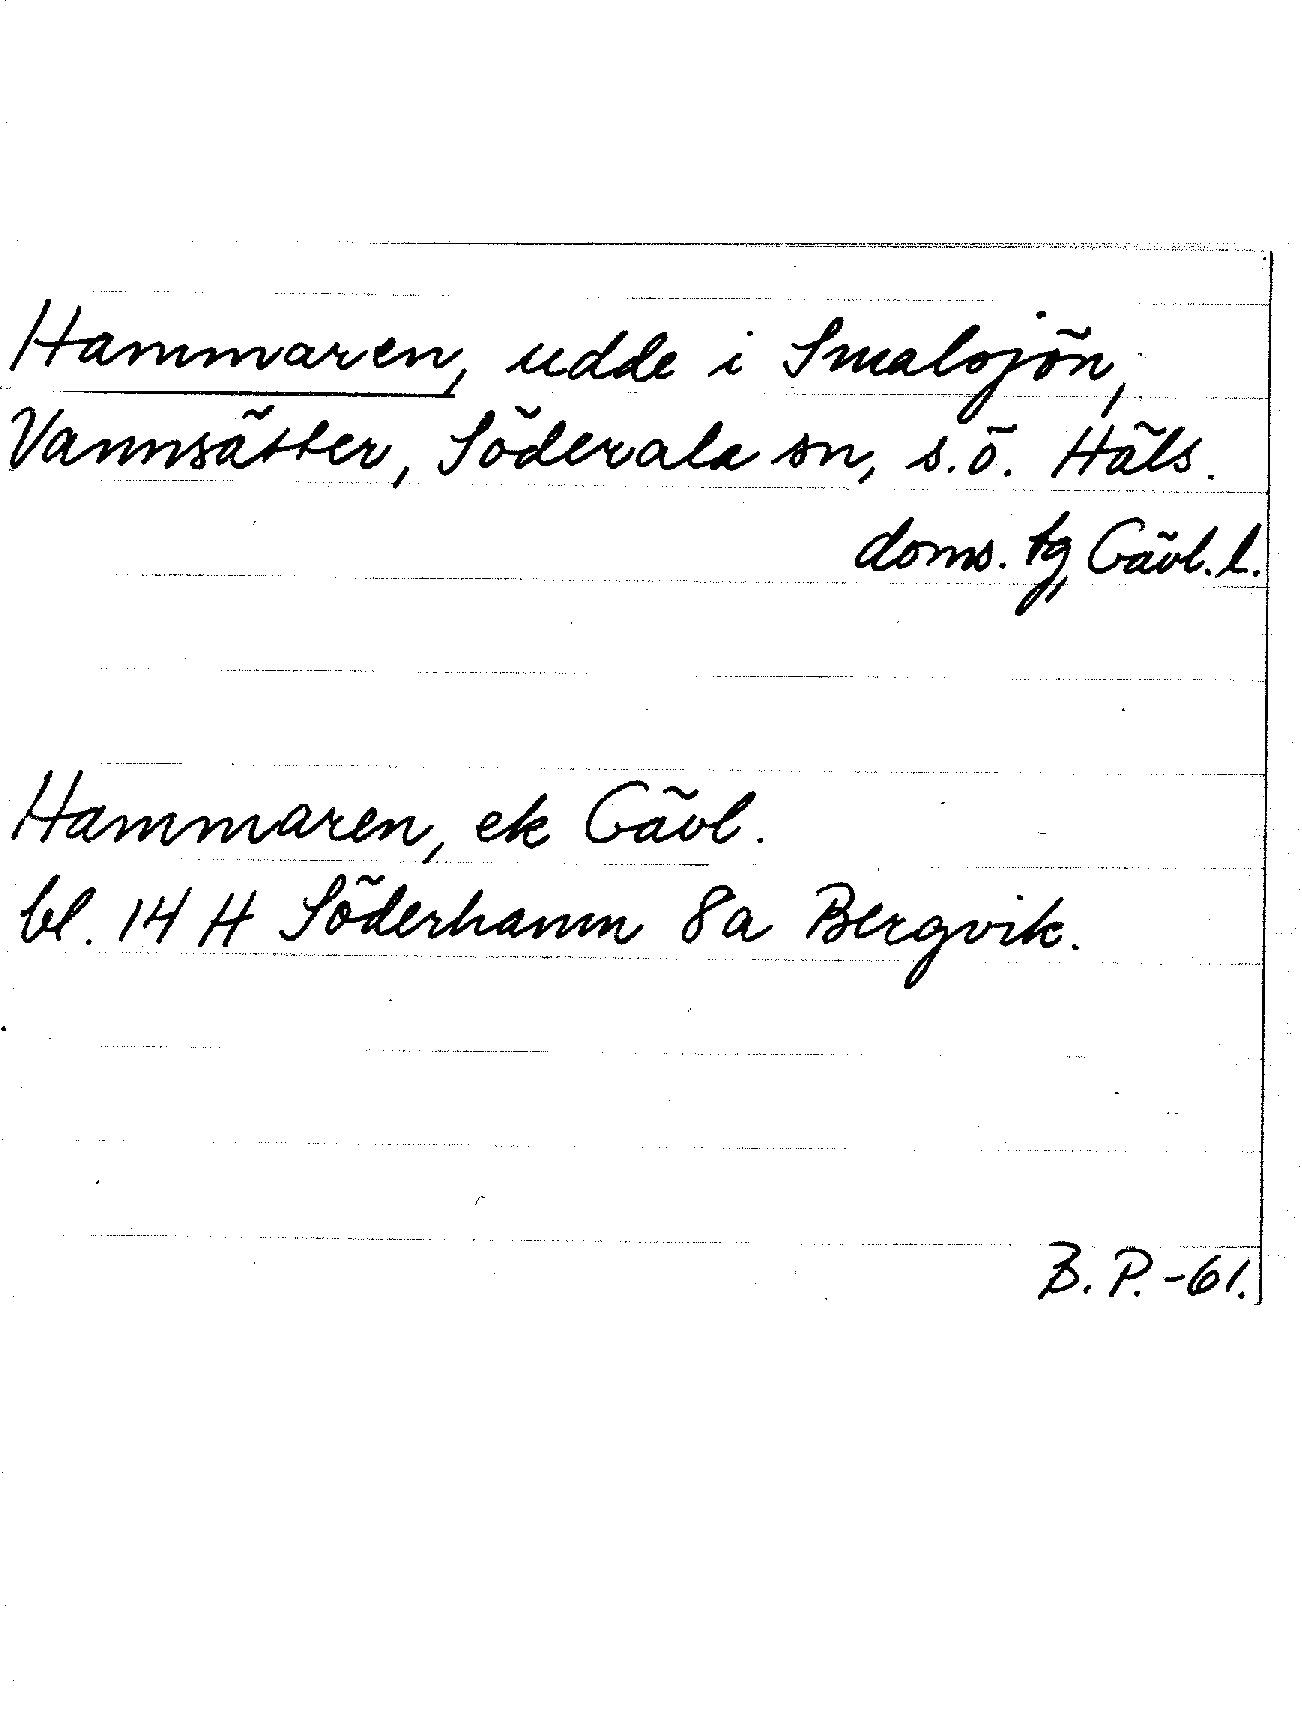 Hammaren, udde i Smalsjön,
Vannsätter, Söderala sn, s.ö. Häls.
doms. tg, Gävl. l.
Hammaren, ek Gävl.
bl. 14 H Söderhamn 8a Bergvik.
B. P. -61.